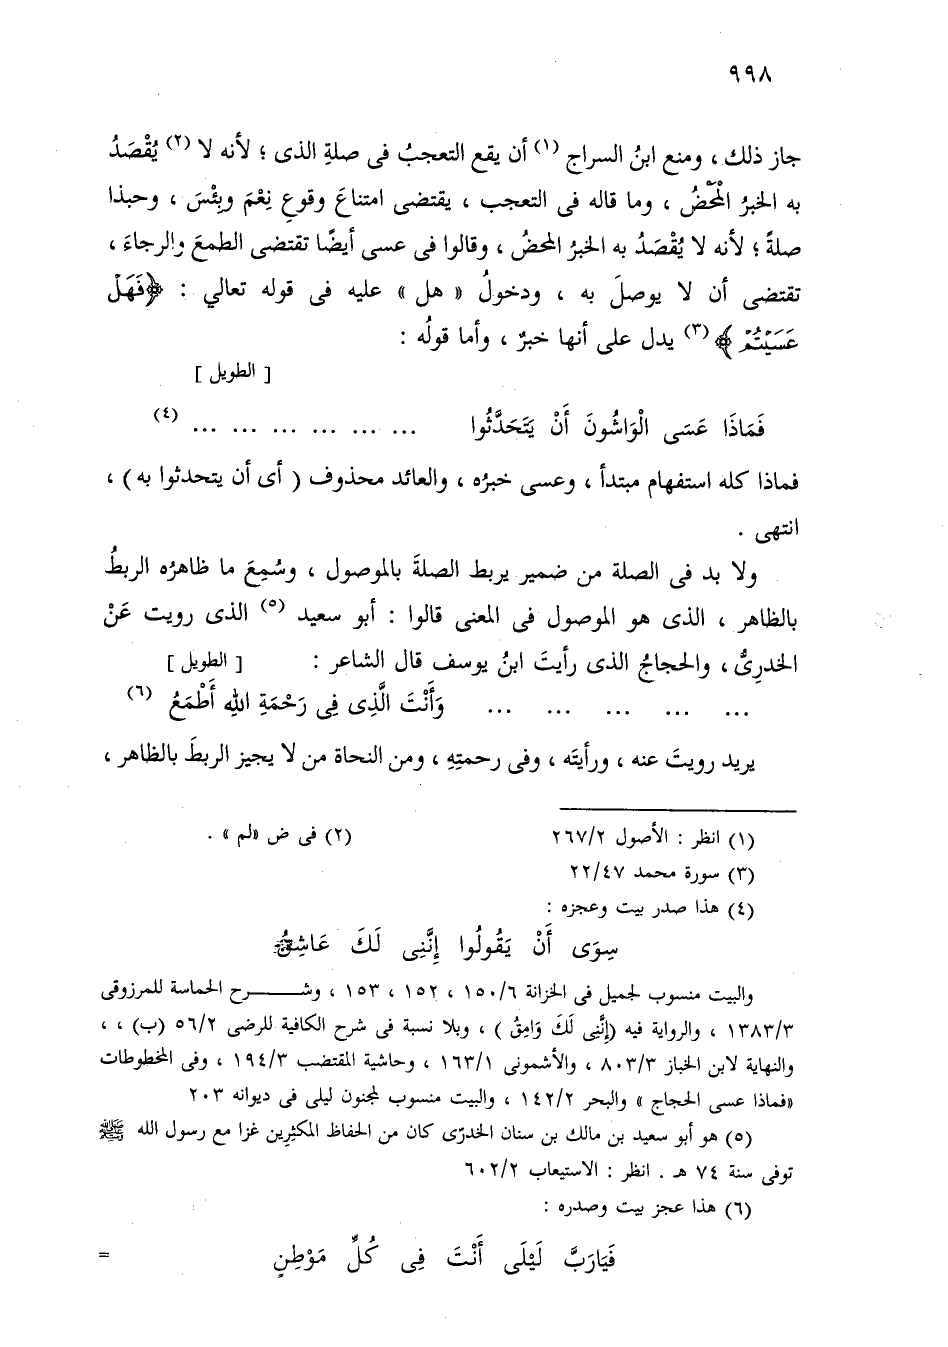 ٩٩٨
جاز ذلك ، ومنع ابنُ السراج (١) أن يقع التعجبُ فى صلةِ الذى ؛ لأنه لا (٢) يُقْصَدُ
به الخبرُ الْمَحْضُ ، وما قاله فى التعجب ، يقتضى امتناعَ وقوعِ نِعْمَ وبِئْسَ ، وحبذا
صلةً ؛ لأنه لا يُقْصَدُ به الخبرُ المحضُ ، وقالوا فى عسى أيضًا تقتضى الطمعَ والرجاءَ ،
تقتضى أن لا يوصلَ به ، ودخولُ « هل » عليه فى قوله تعالي : ﴿فَهَلْ
عَسَيْتُمْ ﴾ (٣) يدل على أنها خبرٌ ، وأما قولُه :
[ الطويل ]
فَمَاذَا عَسَى الْوَاشُونَ أَنْ يَتَحَدَّثُوا ... ... ... ... ... ... (٤)
فماذا كله استفهام مبتدأ ، وعسى خبرُه ، والعائد محذوف ( أى أن يتحدثوا به ) ،
انتهى .
ولا بد فى الصلة من ضمير يربط الصلةَ بالموصول ، وسُمِعَ ما ظاهرُه الربطُ
بالظاهر ، الذى هو الموصول فى المعنى قالوا : أبو سعيد (٥) الذى رويت عَنْ
الخدرِىُّ ، والحجاجُ الذى رأيتَ ابنُ يوسف قال الشاعر : [ الطويل ]
... ... ... ... ... وَأَنْتَ الَّذِى فِى رَحْمَةِ اللهِ أَطْمَعُ (٦)
يريد رويتَ عنه ، ورأيتَه ، وفى رحمتِهِ ، ومن النحاة من لا يجيز الربطَ بالظاهر ،
(١) انظر : الأصول ٢٦٧/٢ (٢) فى ض «لم» .
(٣) سورة محمد ٢٢/٤٧
(٤) هذا صدر بيت وعجزه :
سِوَى أَنْ يَقُولُوا إِنَّنِى لَكَ عَاشِقُ
والبيت منسوب لجميل فى الخزانة ١٥٠/٦ ، ١٥٢ ، ١٥٣ ، وشـــرح الحماسة للمرزوقى
١٣٨٣/٣ ، والرواية فيه (إِنَّنِى لَكَ وَامِقُ ) ، وبلا نسبة فى شرح الكافية للرضى ٥٦/٢ (ب) ، ،
والنهاية لابن الخباز ٨٠٣/٣ ، والأشمونى ١٦٣/١ ، وحاشية المقتضب ١٩٤/٣ ، وفى المخطوطات
«فماذا عسى الحجاج » والبحر ١٤٢/٢ ، والبيت منسوب لمجنون ليلى فى ديوانه ٢٠٣
(٥) هو أبو سعيد بن مالك بن سنان الخدرّى كان من الحفاظ المكثِرِين غزا مع رسول الله ﷺ
توفى سنة ٧٤ هـ . انظر : الاستيعاب ٦٠٢/٢
(٦) هذا عجز بيت وصدره :
فَيَارَبَّ لَيْلَى أَنْتَ فِى كُلِّ مَوْطِنٍ
=